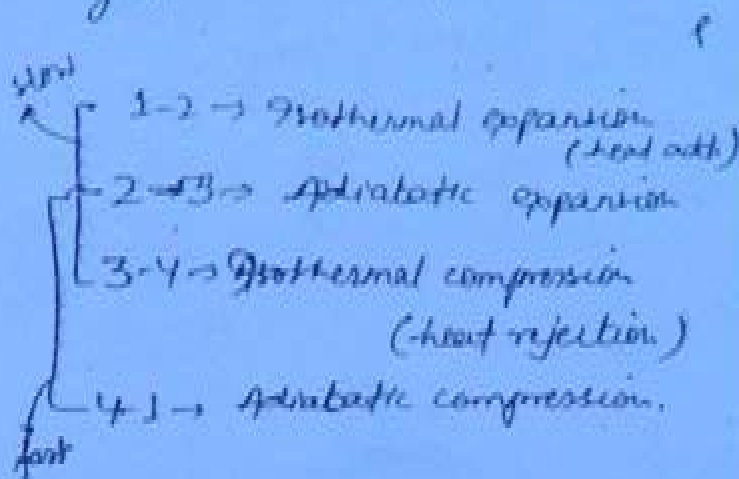 slow
1-2 → Isothermal expansion
(heat addn)
2-3 → Adiabatic expansion
3-4 → Isothermal compression
(heat rejection)
4-1 → Adiabatic compression.
fast